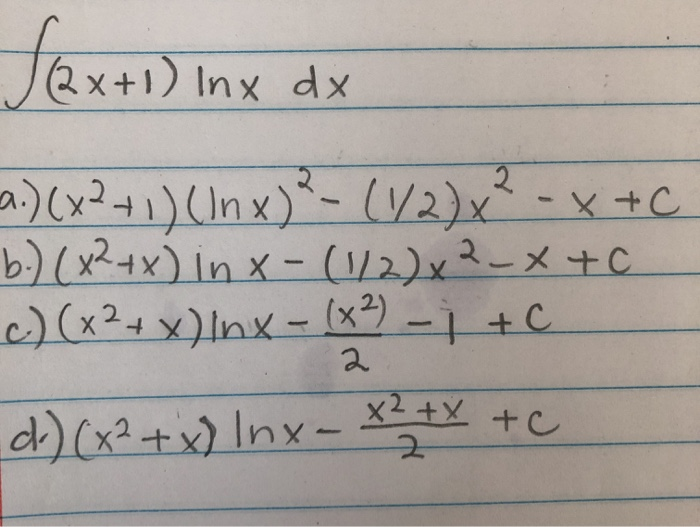 ∫(2x+1) ln x dx
a.) (x²+1)(ln x)² - (1/2)x² - x + C
b.) (x²+x) ln x - (1/2)x² - x + C
c.) (x²+x) ln x - (x²)/2 - 1 + C
d.) (x²+x) ln x - x²+x/2 + C